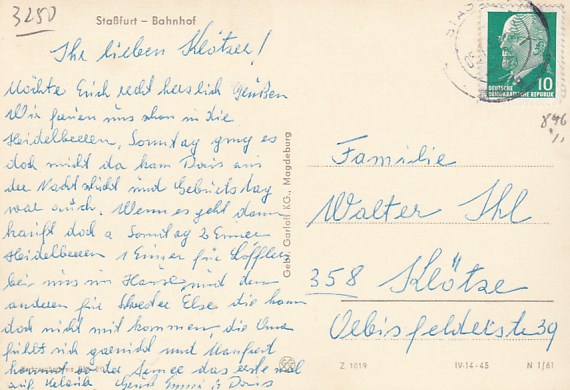 3250
Staßfurt – Bahnhof
Ihr lieben Klötzer!
Möchte Euch recht herzlich Grüßen
Wir freuen uns schon in die
Heidelbeeren, Sonntag ging es
doch nicht da kam Doris aus
der Nachtschicht und Geburtstag
war auch. Wenn es geht dann
kauft doch a Sonntag 2 Eimer
Heidelbeeren 1 Eimer für Löffler
bei uns im Hause und den
anderen für Schwester Else die kann
doch nicht mit kommen die Oma
fühlt sich und Manfred
kommt von der Armee das erste mal
auf Urlaub Gruß u Doris
Gebr. Garloff KG., Magdeburg
DEUTSCHE
DEMOKRATISCHE REPUBLIK
10
846
Familie
Walter Ihl
358 Klötze
Oebisfelderstr 39
Z 1019
IV-14-45
N 1/61